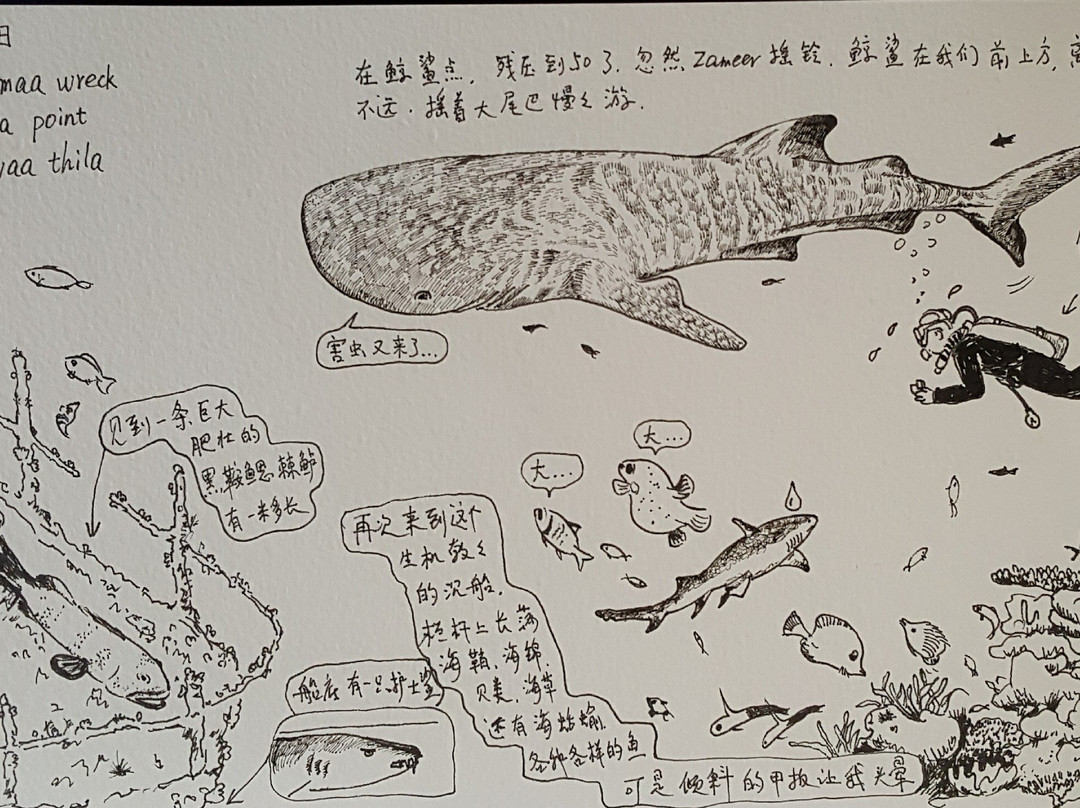 日
maa wreck
a point
yaa thila
在鲸鲨点，残压到50了．忽然Zameer摇铃．鲸鲨在我们前上方，离
不远．摇着大尾巴慢々游．
害虫又来了...
见到一条巨大
肥壮的
黑鞍鳃棘鲈
有一米多长
大...
大....
再次来到这个
生机勃々
的沉船．
桅杆上长满
海鞘．海绵．
贝类．海草
还有海蛞蝓．
各种各样的鱼
可是倾斜的甲板让我头晕
船底有一只护士鲨